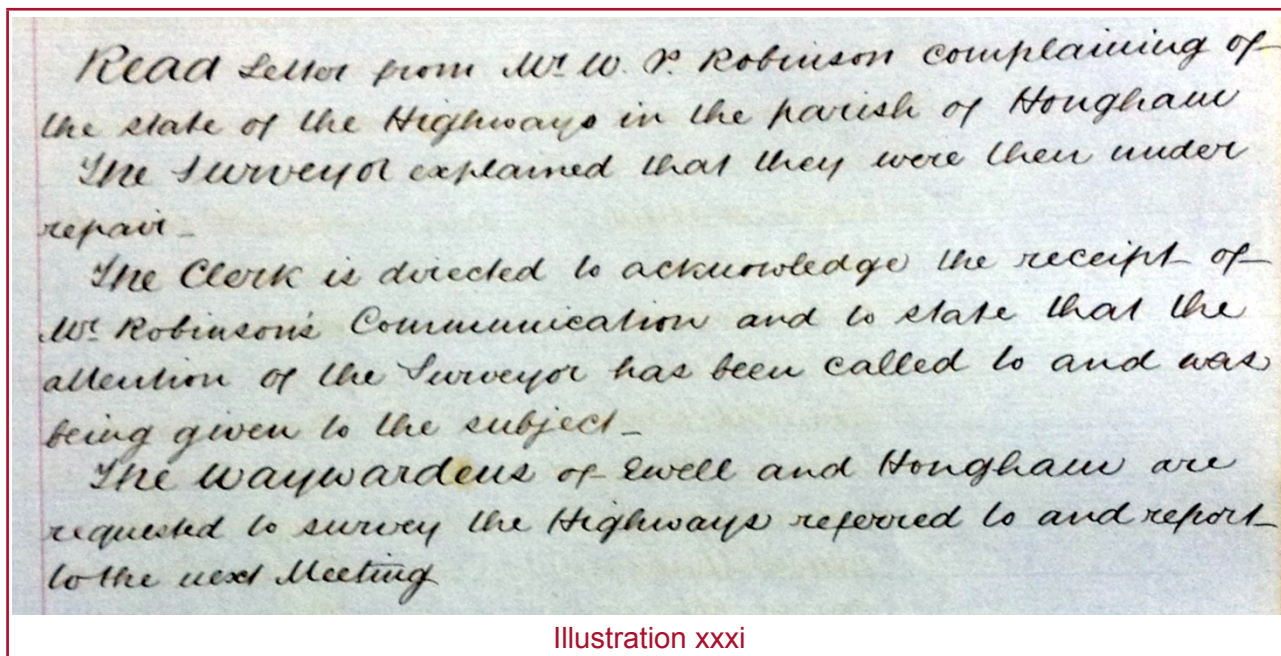 Read Letter from Mr W. P. Robinson complaining of
the state of the Highways in the parish of Hougham
The Surveyor explained that they were then under
repair_
The Clerk is directed to acknowledge the receipt of
Mr. Robinson's Communication and to state that the
attention of the Surveyor has been called to and was
being given to the subject_
The Waywardens of Ewell and Hougham are
requested to survey the Highways referred to and report
to the next Meeting
Illustration xxxi